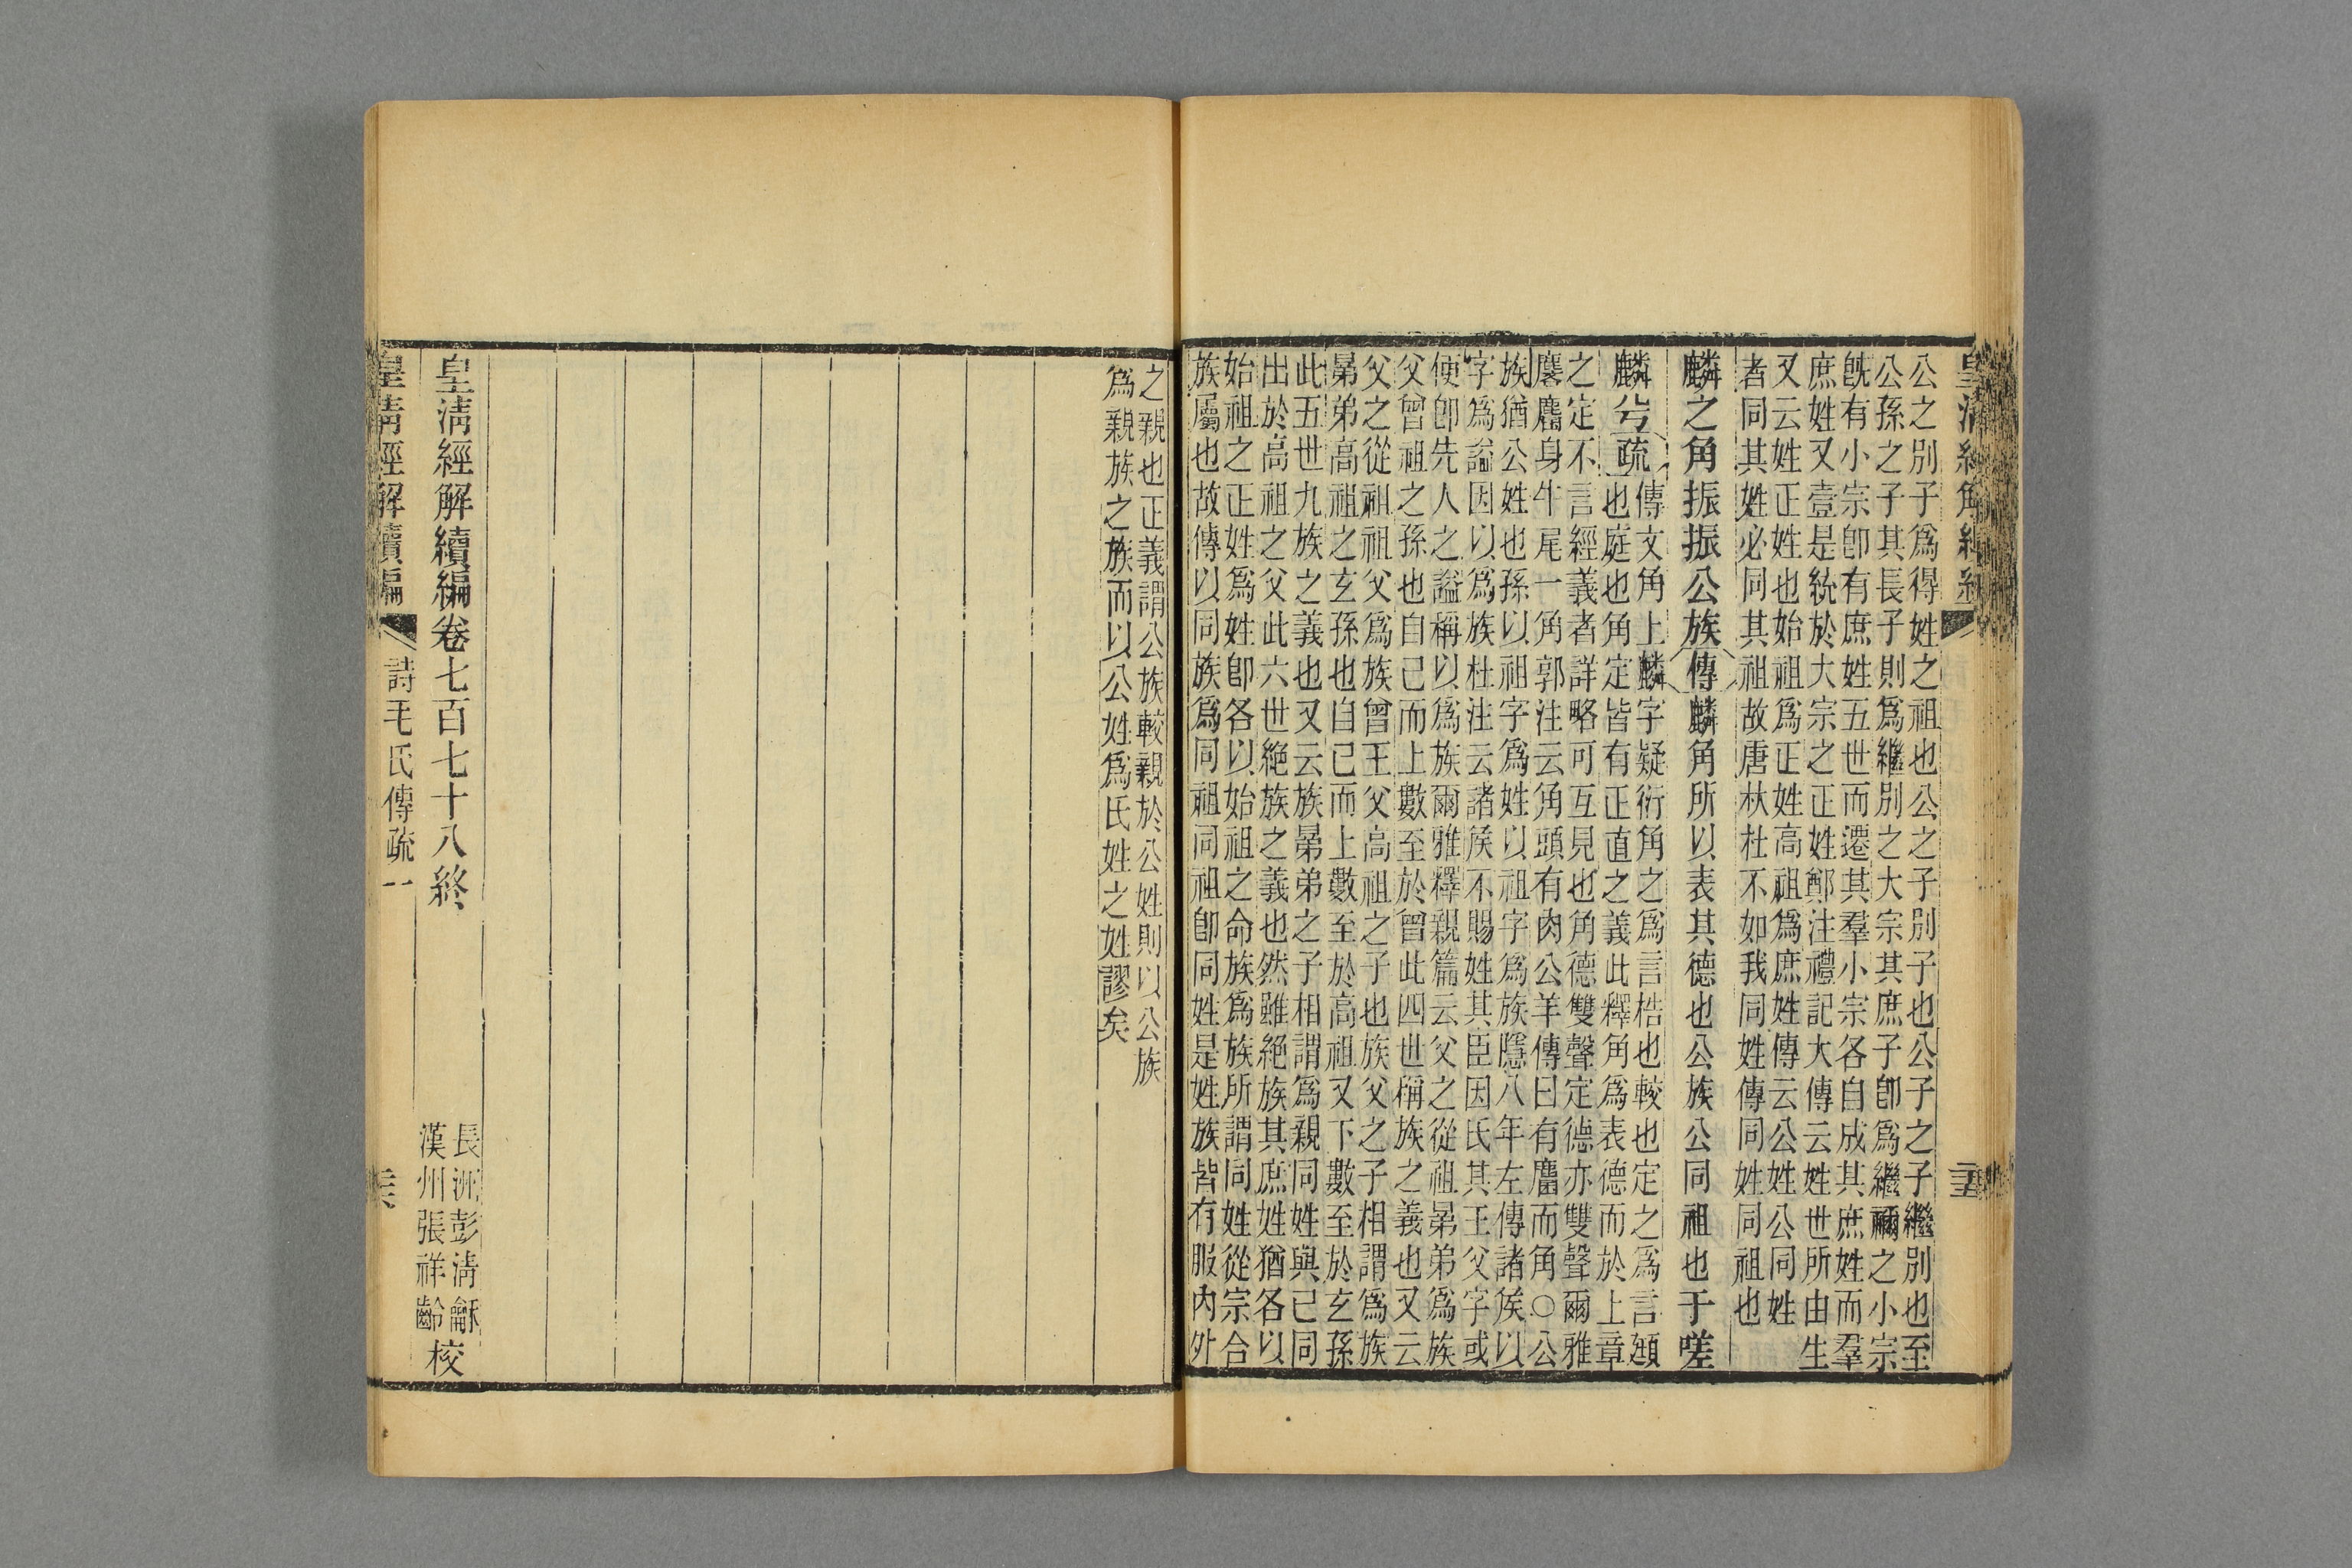 公之別子爲得姓之祖也公之子別子也公子之子繼別也至
公孫之子其長子則爲繼別之大宗其庶子卽爲繼禰之小宗
旣有小宗卽有庶姓五世而遷其羣小宗各自成其庶姓而羣
庶姓又壹是統於大宗之正姓鄭注禮記大傳云姓世所由生
又云姓正姓也始祖爲正姓高祖爲庶姓傳云公姓公同姓
者同其姓必同其祖故唐杕杜不如我同姓傳同姓同祖也
麟之角振振公族傳麟角所以表其德也公族公同祖也于嗟
麟兮疏
傳文角上麟字疑衍角之爲言梏也較也定之爲言頲
也庭也角定皆有正直之義此釋角爲表德而於上章
之定不言經義者詳略可互見也角德雙聲定德亦雙聲爾雅
麐麕身牛尾一角郭注云角頭有肉公羊傳曰有麕而角○公
族猶公姓也孫以祖字爲姓以祖字爲族隱八年左傳諸矦以
字爲謚因以爲族杜注云諸矦不賜姓其臣因氏其王父字或
使卽先人之謚稱以爲族爾雅釋親篇云父之從祖晜弟爲族
父曾祖之孫也自己而上數至於曾此四世稱族之義也又云
父之從祖祖父爲族曾王父高祖之子也族父之子相謂爲族
晜弟高祖之玄孫也自己而上數至於高祖又下數至於玄孫
此五世九族之義也又云族晜弟之子相謂爲親同姓與己同
出於高祖之父此六世絕族之義也然雖絕族其庶姓猶各以
始祖之正姓爲姓卽各以始祖之命族爲族所謂同姓從宗合
族屬也故傳以同族爲同祖同祖卽同姓是姓族皆有服內外
之親也正義謂公族較親於公姓則以公族
爲親族之族而以公姓爲氏姓之姓謬矣
皇淸經解續編卷七百七十八終
長洲彭淸龢
漢州張祥齡
校
皇淸經解續編
詩毛氏傳疏一